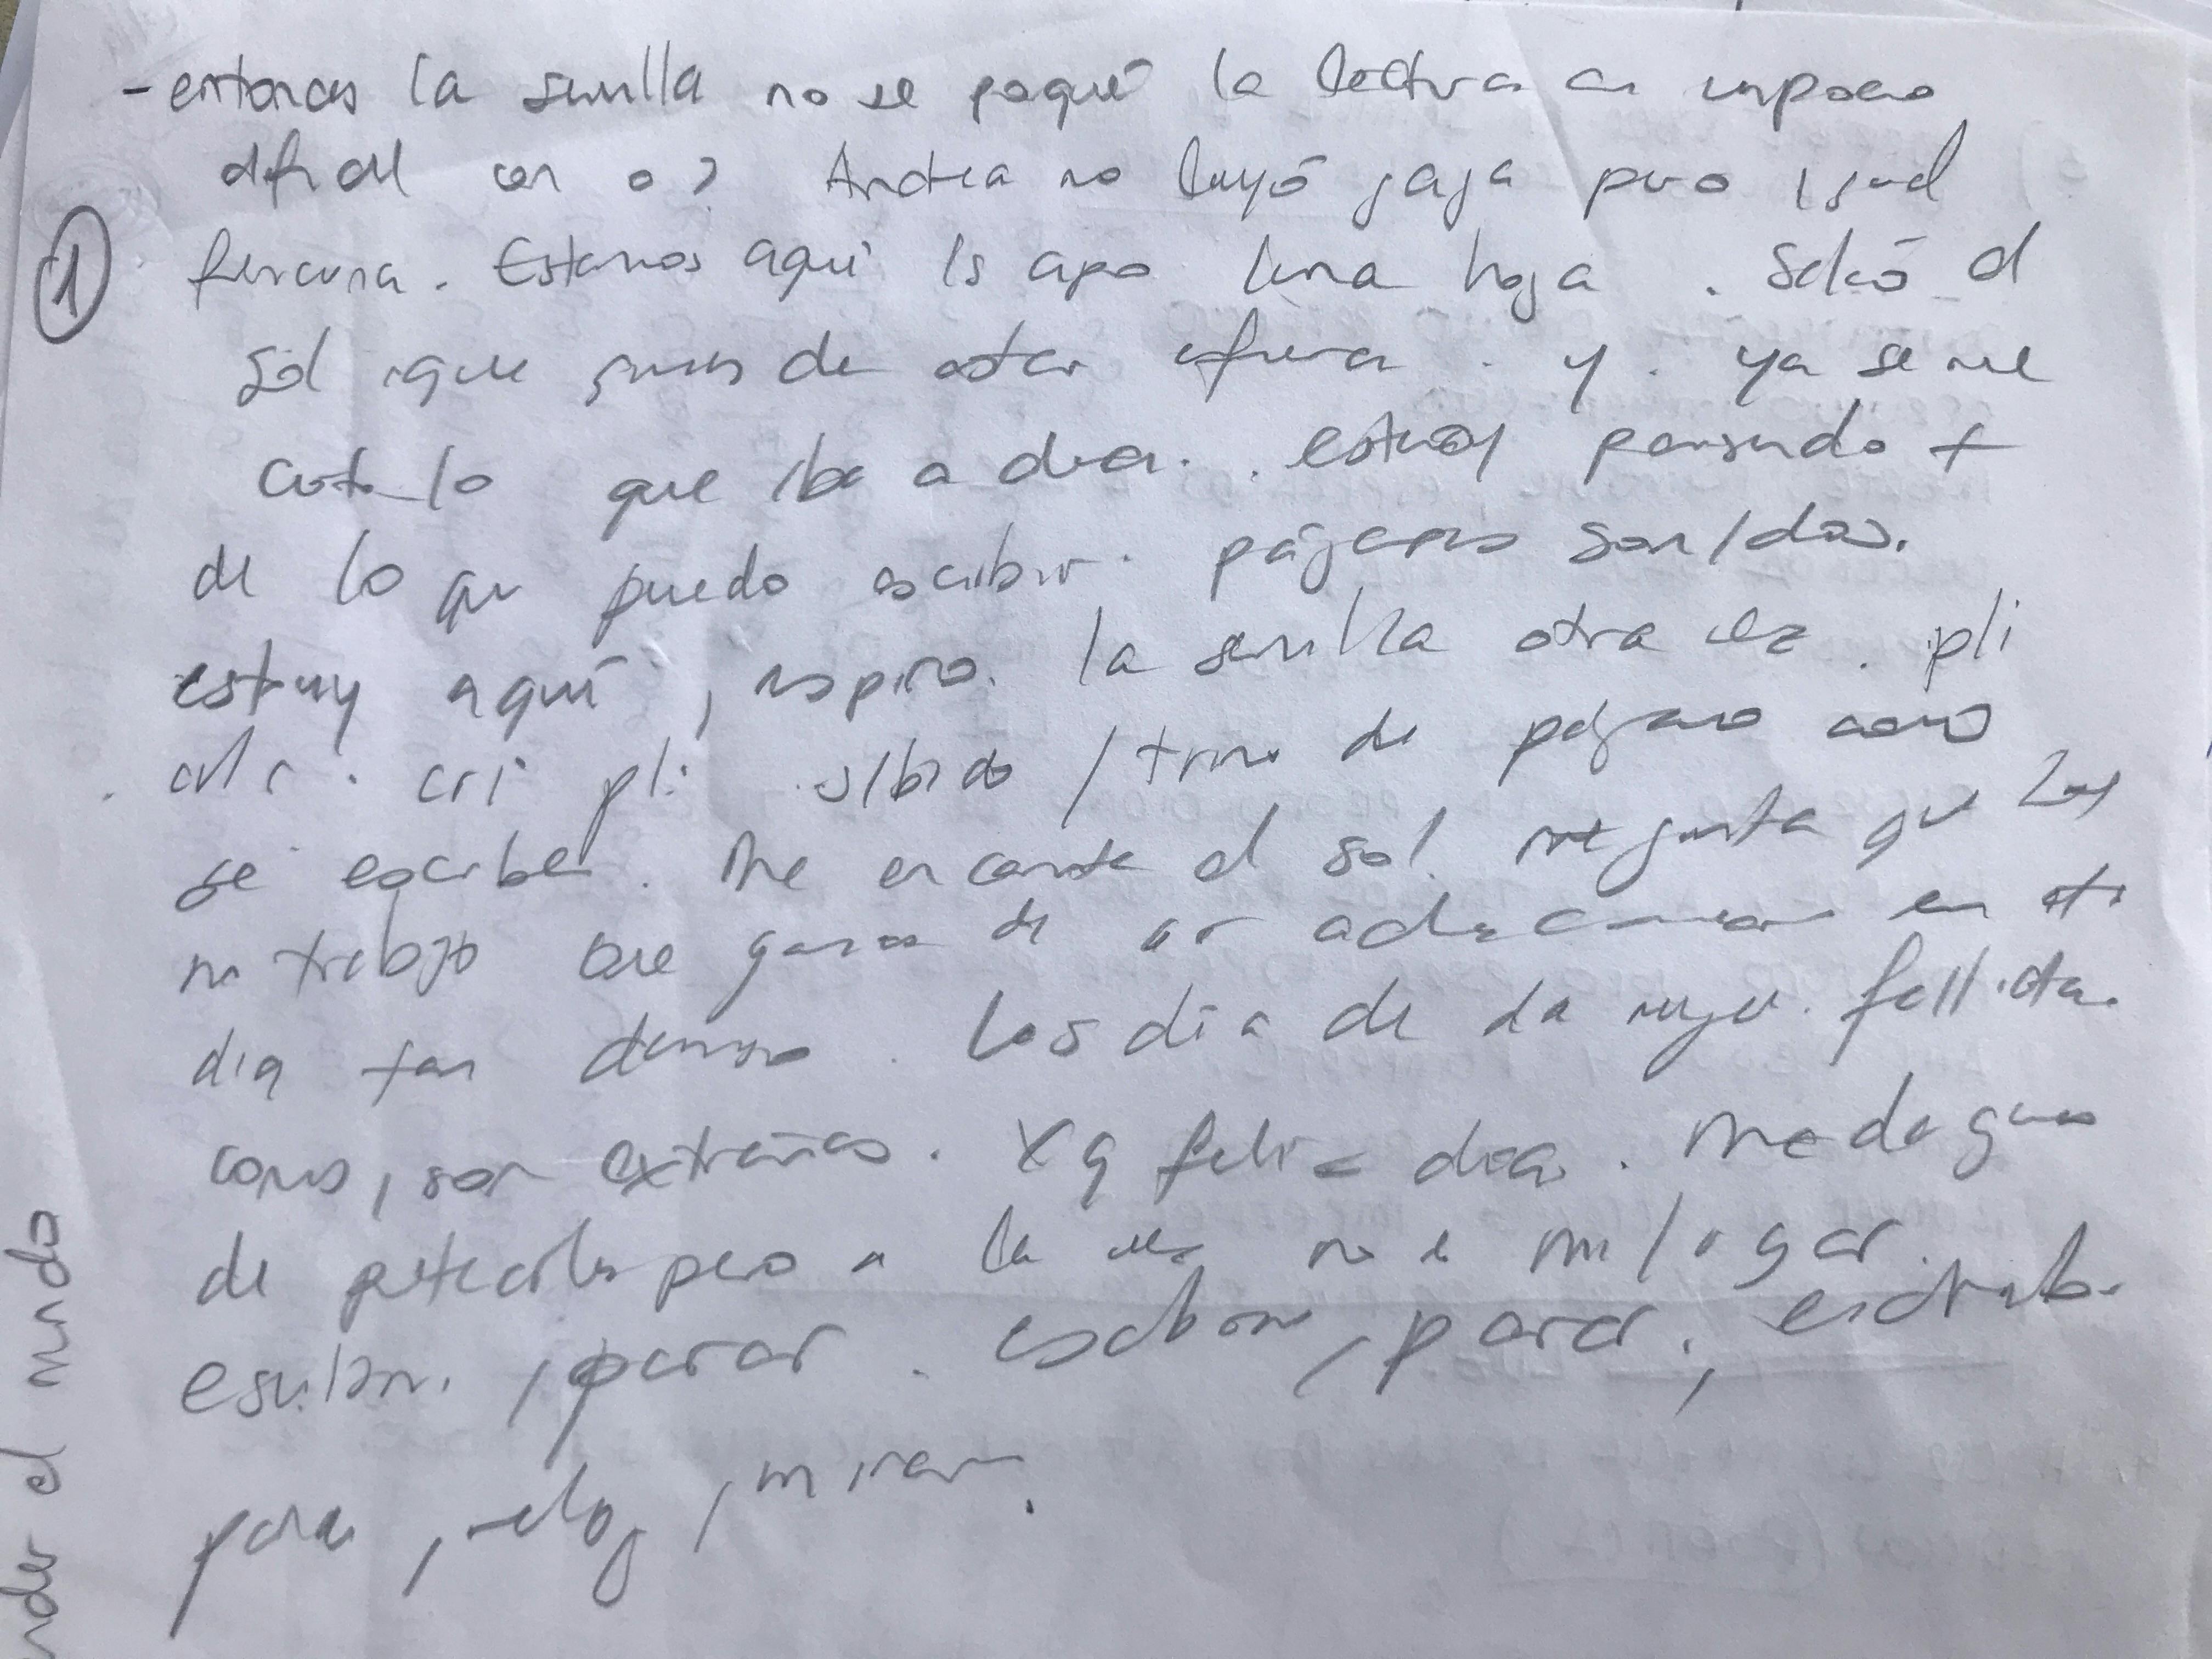 - entonces la semilla no se paqué la lectura es un poco
difícil con o? Andrea no leyó jaja pero igual
①
funciona. Estamos aquí ls apo una hoja. Salió el
sol que ganas de estar afuera. y. ya se me
lo que iba a decir.. estoy pensando +
de lo que puedo escribir. pájaros sonidos.
estoy aquí, respiro. la semilla otra vez. pli
. cri. cri pli silbido / trino de pájaro como
se escribe. Me encanta el sol. me gusta que hoy
no trabajo que ganas de ir a en este
día tan denso. Los día de la mujer. fallida.
como, son extraños. Xq feliz día. Me da ganas
de pero a la vez no es mi lugar.
, parar. escribir, parar,
parar, reloj, mirar.
nder el mundo